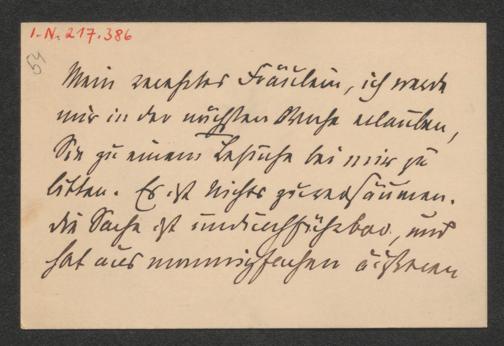 I.N. 217.386
54
Mein verehrtes Fräulein, ich werde
mir in der nächsten Woche erlauben,
Sie zu einem Besuche bei mir zu
bitten. Es ist Nichts zu versäumen.
die Sache ist undurchführbar, und
hat aus mannigfachen äußeren